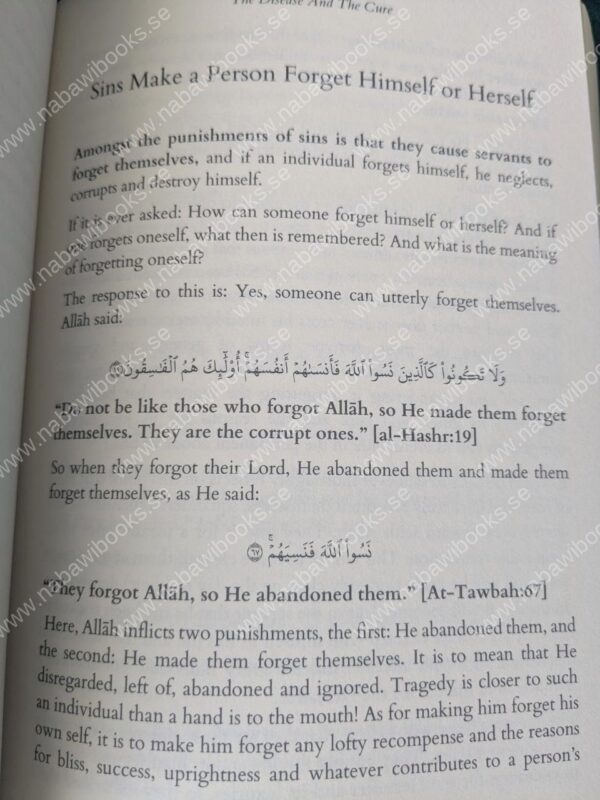 The Disease And The Cure
Sins Make a Person Forget Himself or Herself
Amongst the punishments of sins is that they cause servants to
forget themselves, and if an individual forgets himself, he neglects,
corrupts and destroy himself.
If it is ever asked: How can someone forget himself or herself? And if
one forgets oneself, what then is remembered? And what is the meaning
of forgetting oneself?
The response to this is: Yes, someone can utterly forget themselves.
Allāh said:
وَلَا تَكُونُوا۟ كَٱلَّذِينَ نَسُوا۟ ٱللَّهَ فَأَنسَىٰهُمْ أَنفُسَهُمْ ۚ أُو۟لَٰٓئِكَ هُمُ ٱلْفَٰسِقُونَ ١٩
“Do not be like those who forgot Allāh, so He made them forget
themselves. They are the corrupt ones.” [al-Hashr:19]
So when they forgot their Lord, He abandoned them and made them
forget themselves, as He said:
نَسُوا۟ ٱللَّهَ فَنَسِيَهُمْ ۚ ٦٧
“They forgot Allāh, so He abandoned them.” [At-Tawbah:67]
Here, Allāh inflicts two punishments, the first: He abandoned them, and
the second: He made them forget themselves. It is to mean that He
disregarded, left of, abandoned and ignored. Tragedy is closer to such
an individual than a hand is to the mouth! As for making him forget his
own self, it is to make him forget any lofty recompense and the reasons
for bliss, success, uprightness and whatever contributes to a person’s
www.nabawibooks.se